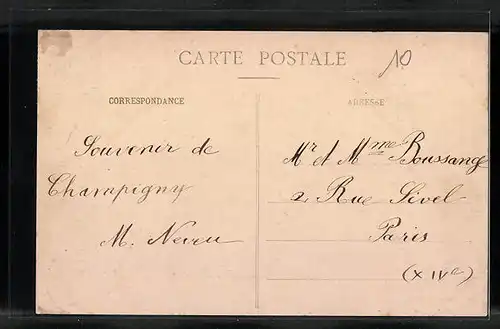 CARTE POSTALE
10
CORRESPONDANCE
ADRESSE
Souvenir de
Champigny
M. Neveu
Mr et Mme Boussang
2 Rue Sivel
Paris
(XIVe)